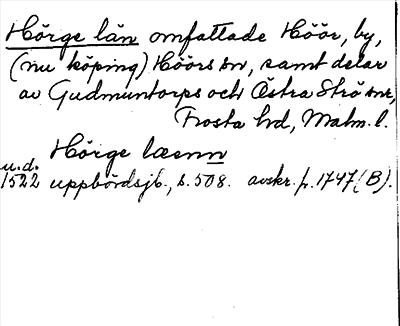 Hörge län omfattade Höör, by,
(nu köping) Höörs sn, samt delar
av Gudmuntorps och Östra Strö snr,
Frosta hd, Malm. l.
Hörge læenn
u.d.
1522 uppbördsjb., s. 508. avskr. fr. 1747 (B).